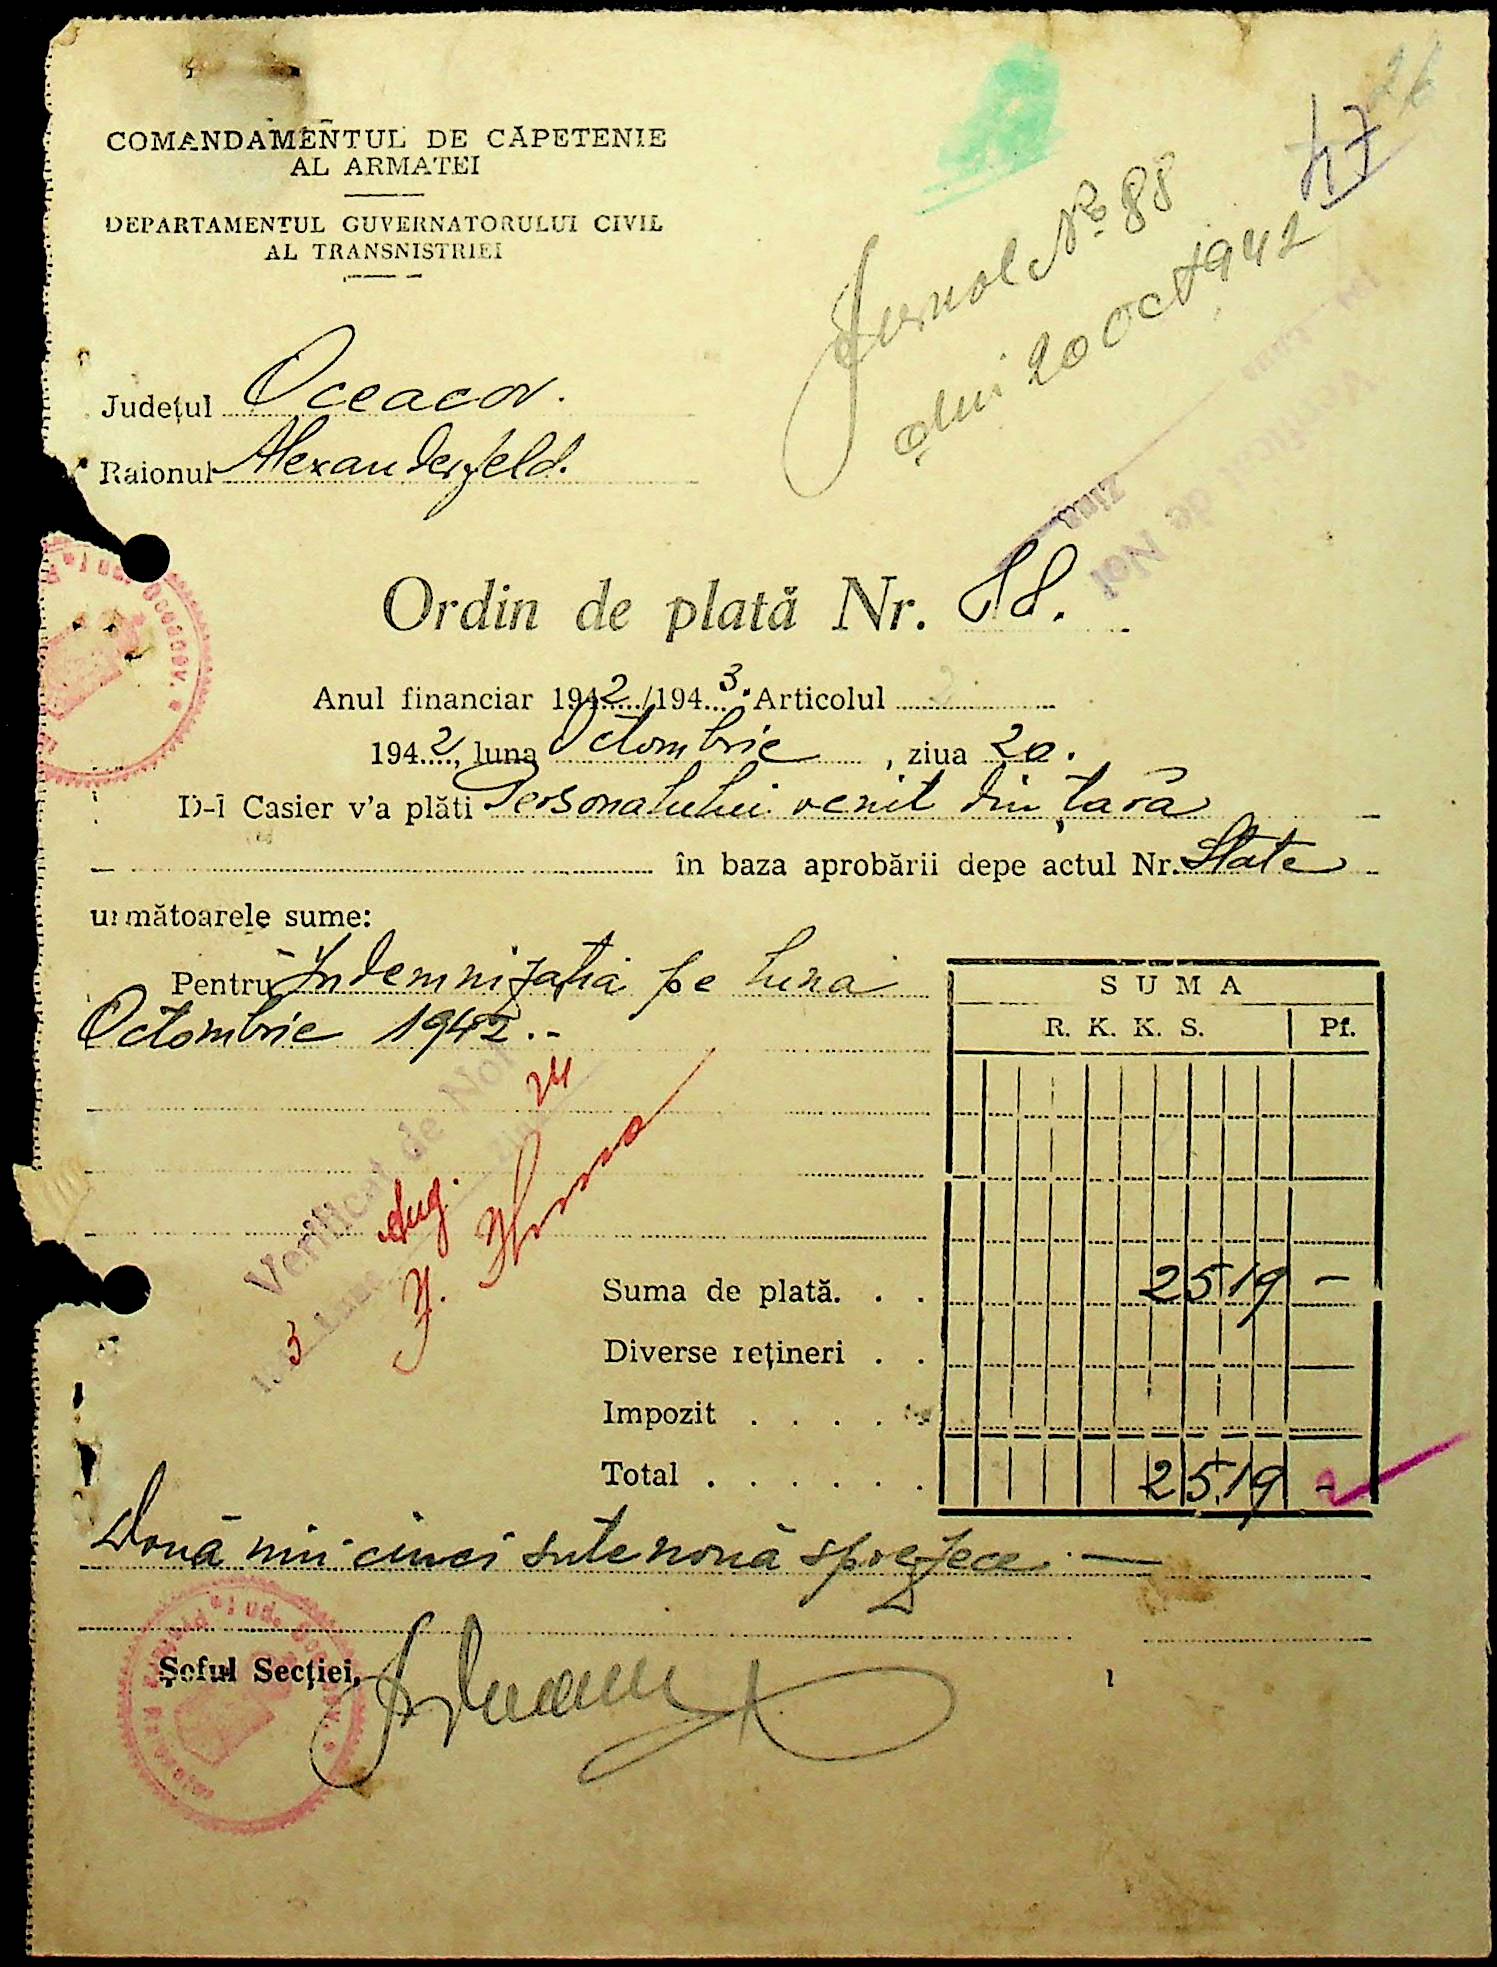 26
47
COMANDAMENTUL DE CĂPETENIE
AL ARMATEI
DEPARTAMENTUL GUVERNATORULUI CIVIL
AL TRANSNISTRIEI
Jurnal No 88
din 20 Oct 1942
Județul Oceacov.
Raionul Alexanderfeld.
Ordin de plată Nr. 88.
Anul financiar 1942/1943. Articolul 2
1942, luna Octombrie, ziua 20.
D-l Casier v'a plăti Personalului venit din țară
în baza aprobării depe actul Nr. State
următoarele sume:
Pentru Indemnizația pe luna
Octombrie 1942.-
SUMA
R. K. K. S. Pf.
Verificat de Noi
3 Luna Aug. Ziua 24
Suma de plată. . . 2519 -
Diverse rețineri . .
Impozit . . . .
Total . . . . . . 2519 -
Două mii cinci sute nouă spre zece.-
Șeful Secției,